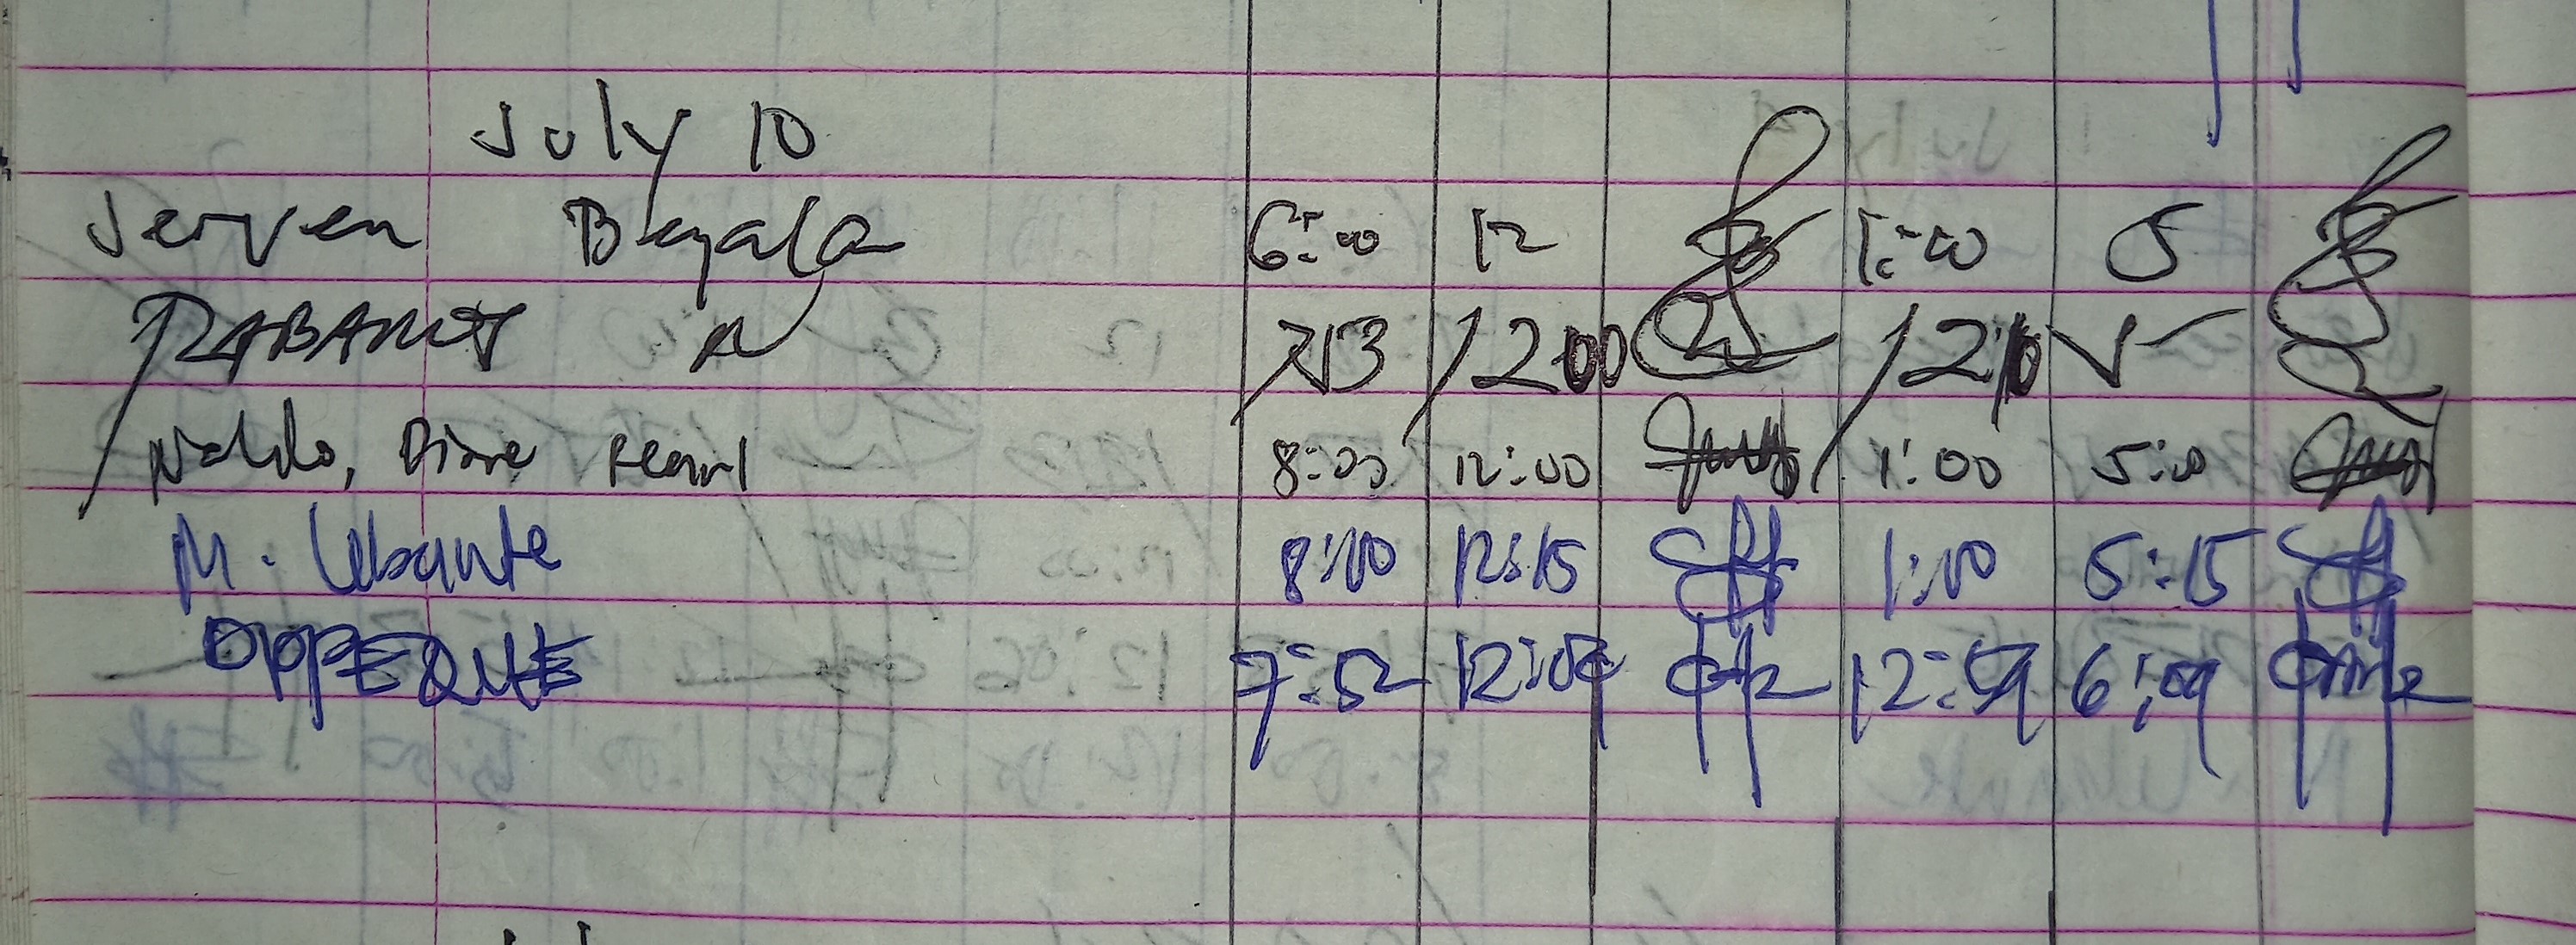 July 10
Jerven 6:00 12 1:00 5
N 713 1200 1210
Naldo, Diane Pearl 8:00 12:00 1:00 5:00
M. Lebante 8:10 12:15 1:10 5:15
OPPEQUE 7:52 12:09 12:59 6:09